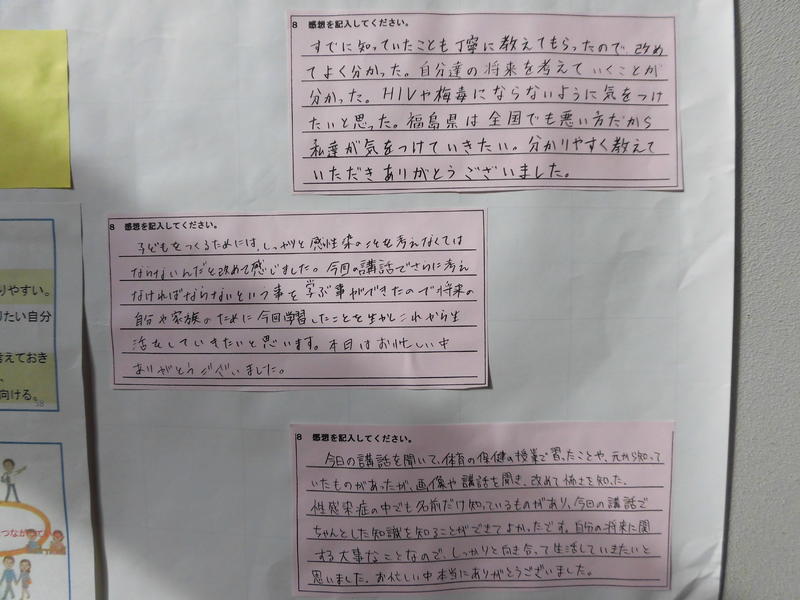 8 感想を記入してください。
すでに知っていたことも丁寧に教えてもらったので、改め
てよく分かった。自分達の将来を考えていくことが
分かった。HIVや梅毒にならないように気をつけ
たいと思った。福島県は全国でも悪い方だから
私達が気をつけていきたい。分かりやすく教えて
いただきありがとうございました。
8 感想を記入してください。
子どもをつくるためには、しっかりと感性染のことを考えなくては
ならないんだと改めて感じました。今回の講話でさらに考え
なければならないという事を学ぶ事ができたので将来の
自分や家族のために今回学習したことを生かしこれから生
活をしていきたいと思います。本日はお忙しい中
ありがとうございました。
8 感想を記入してください。
今日の講話を聞いて、体育の保健の授業で習ったことや、元から知って
いたものがあったが、画像や講話を聞き、改めて怖さを知った。
性感染症の中でも名前だけ知っているものがあり、今日の講話で
ちゃんとした知識を知ることができてよかったです。自分の将来に関
する大事なことなので、しっかりと向き合って生活していきたいと
思いました。お忙しい中本当にありがとうございました。
りやすい。
りたい自分
考えておき
向ける。
38
つなが